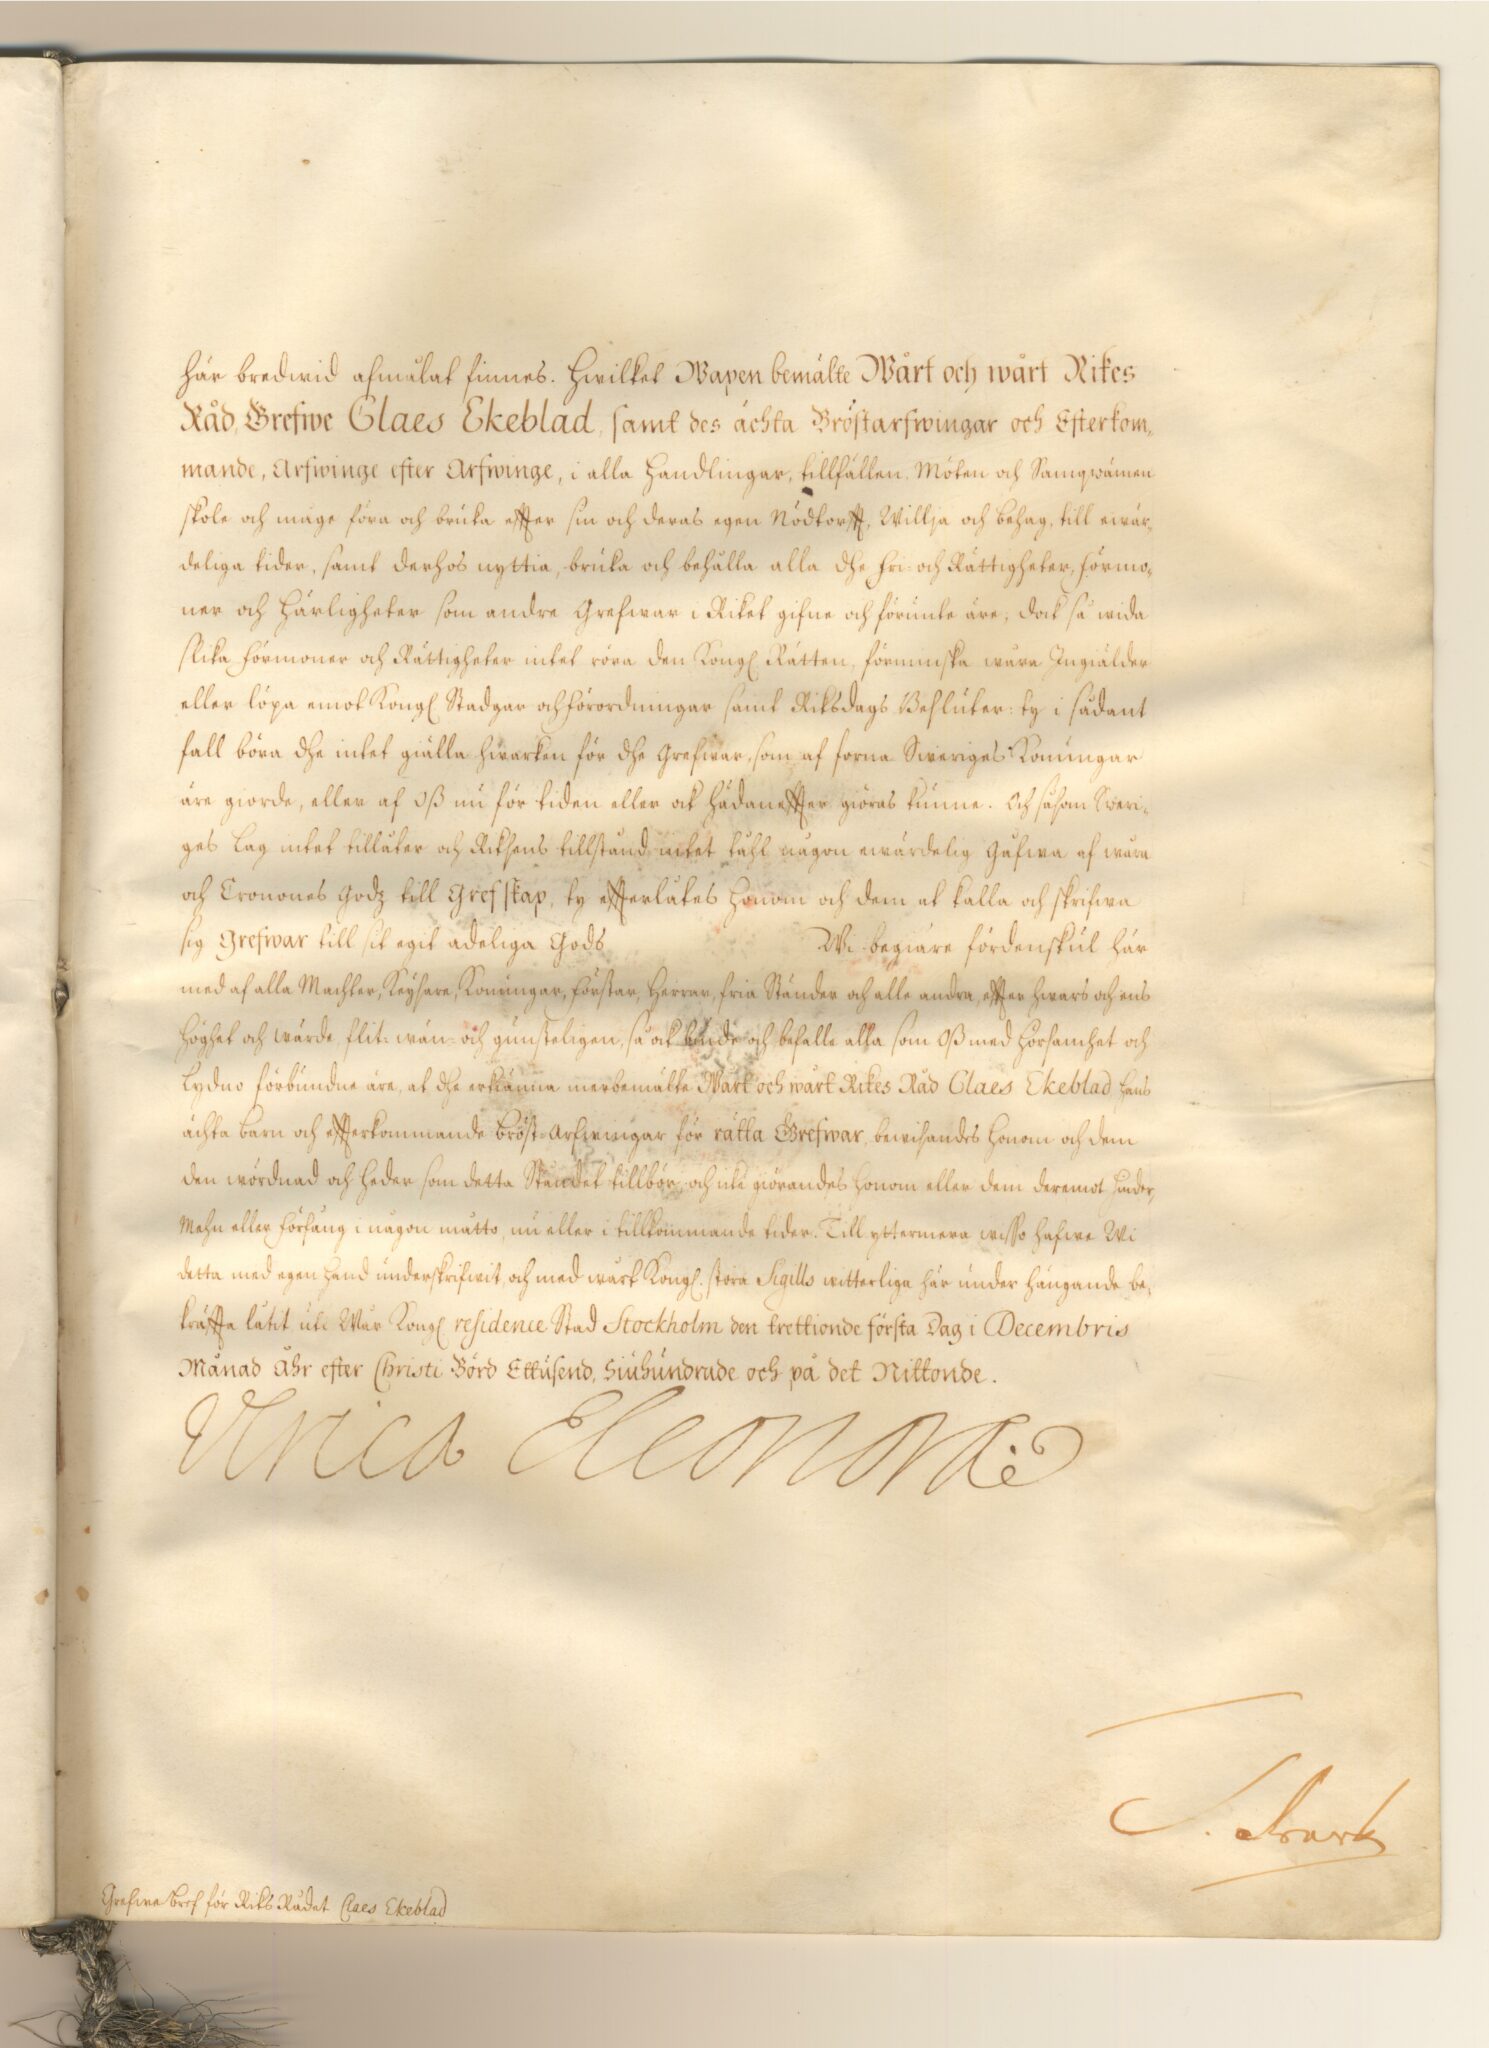 här bredwid afmålat finnes. Hwilket Wapen bemälte Wårt och wårt Rikes
Råd, Grefwe Claes Ekeblad, samt des ächta Bröstarfwingar och Efterkom-
mande, Arfwinge efter Arfwinge, i alla Handlingar, tillfällen, Möten och Samqwämen
skole och måge föra och bruka effter sin och deras egen Nödtorfft, Willja och behag, till ewär-
deliga tider, samt derhos nyttia, bruka och behålla alla dhe fri- och Rättigheter, förmo-
ner och Härligheter som andre Grefwar i Riket gifne och förunte äre; dock så wida
slika förmoner och Rättigheter intet röra den Kongl Rätten, förminska wåra Ingiälder
eller löpa emot Kongl Stadgar och förordningar samt Riksdags Besluter: ty i sådant
fall böra dhe intet giälla hwarken för dhe Grefwar, som af forna Sweriges Konungar
äre giorde, eller af Oß nu för tiden eller ock hädaneffter giöras kunne. Och såsom Sweri-
ges Lag intet tillåter och Riksens tillstånd intet tåhl någon ewärdelig Gåfwa af wåra
och Cronones Godz till Grefskap, ty effterlåtes Honom och dem at kalla och skrifwa
sig Grefwar till sit egit adeliga Gods Wi begiäre fördenskul här
med af alla Machter, Keysare, Konungar, Förstar, Herrar, fria Ständer och alle andra, effter hwars och ens
Höghet och wärde, flit- wän- och gunsteligen, så ock biude och befalle alla som Oß med Hörsamhet och
Lydno förbundne äre, at dhe erkiänna merbemälte Wårt och wårt Rikes Råd Claes Ekeblad hans
ächta barn och effterkommande bröst-Arfwingar för rätta Grefwar, bewisandes Honom och dem
den wördnad och heder som detta Ståndet tillbör, och icke giörandes Honom eller dem deremot hinder,
Mehn eller förfång i någon måtto, nu eller i tillkommande tider. Till yttermera wisso hafwe Wi
detta med egen Hand underskrifwit, och med wårt Kongl. stora Sigills witterliga här under hängande be-
kräffta låtit uti Wår Kongl residence Stad Stockholm den trettionde första Dag i Decembris
Månad Åhr efter Christi Börd Ettusend, Siuhundrade och på det Nittonde.
Ulrica Eleonora
Grefwe Bref för Riks Rådet Claes Ekeblad